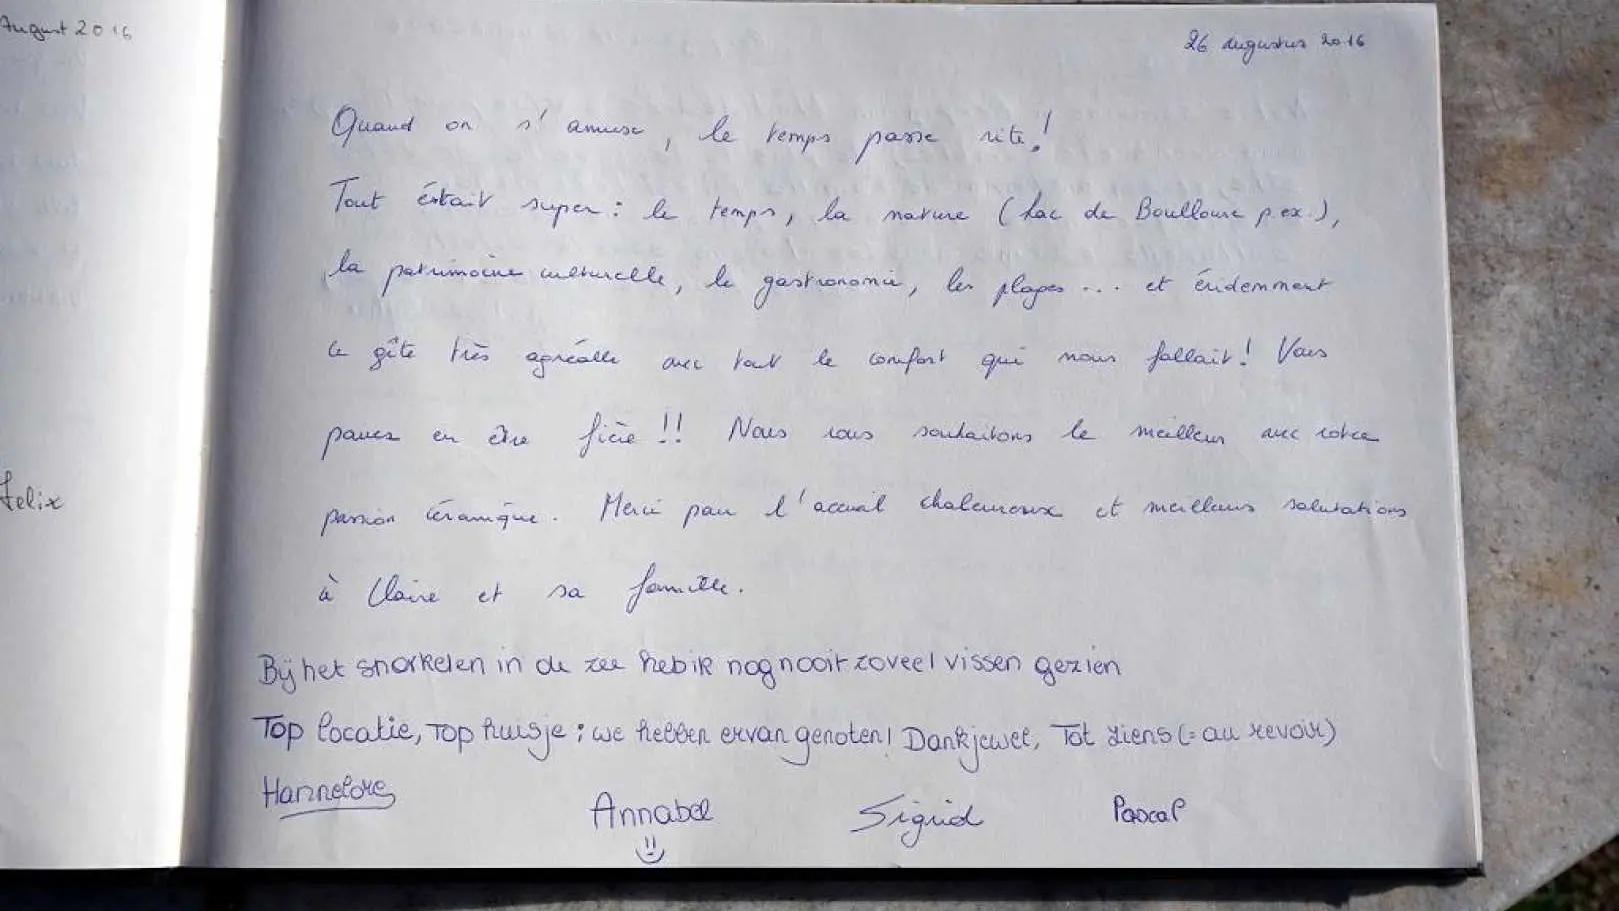 August 2016
Felix
26 augustus 2016
Quand on s'amuse, le temps passe vite!
Tout était super: le temps, la nature (Lac de Boulloure p.ex.),
la patrimoine culturelle, le gastronomie, les plages ... et évidemment
le gîte très agréable avec tout le confort qui nous fallait! Vous
pouvez en être fière!! Nous vous souhaitons le meilleur avec votre
passion céramique. Merci pour l'accueil chaleureux et meilleurs salutations
à Claire et sa famille.
Bij het snorkelen in de zee heb ik nog nooit zoveel vissen gezien
Top locatie, Top huisje: we hebben ervan genoten! Dankjewel, Tot ziens (= au revoir)
Hannelore
Annabel
Sigrid
Pascal